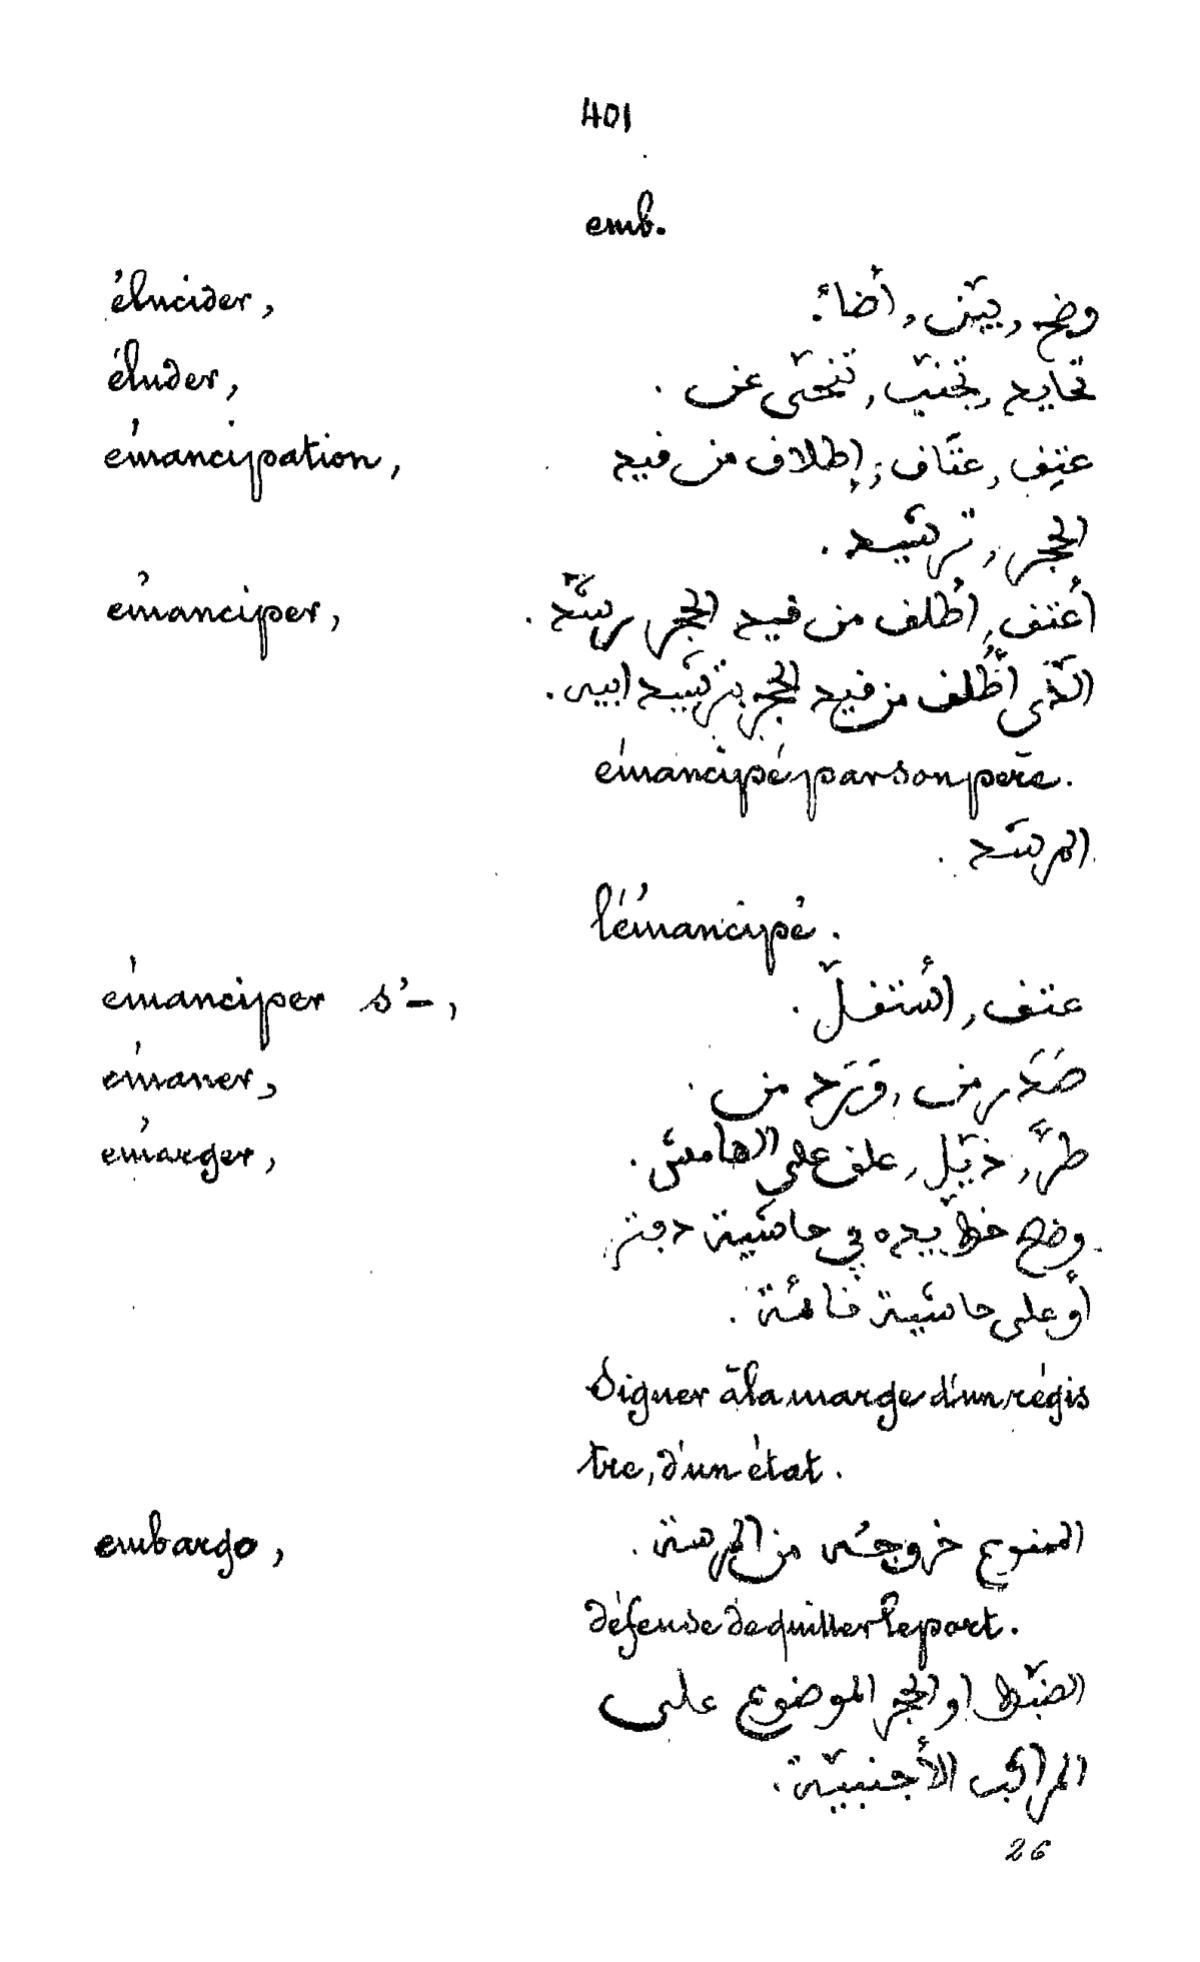 401
emb.
élucider, وضح, بيّن, أضاءَ.
éluder, تحايد, تجنّب, تنحّى عن.
émancipation, عتِق, عتَاق, إطلاق من قيد
الحجر, ترشيد.
émanciper, أعتق, أطلق من قيد الحجر, رشّد.
الّذى أُطلق من قيد الحجر بترشيد ابيه.
émancipé par son père.
المرشد.
l'émancipé.
émanciper s'-, عتق, استقلّ.
émaner, صَدَر من, وَرَد من.
émarger, طرَّر, ذيّل, علق على الهامش.
وضع خطّ يده في حاشية دفتر
أو على حاشية قائمة.
signer à la marge d'un régis
tre, d'un état.
embargo, الممنوع خروجُه من المرسة.
défense de quitter le port.
الضبط او الحجر الموضوع على
المراكب الأجنبيّة.
26